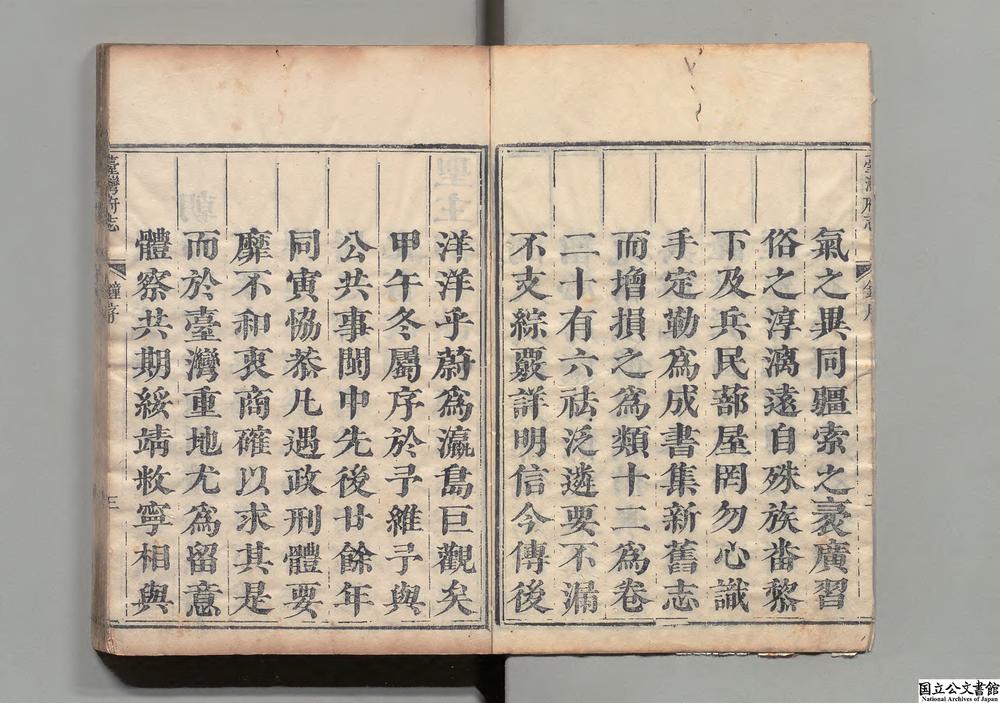 氣之異同疆索之袤廣習
俗之淳漓遠自殊族番黎
下及兵民蔀屋罔勿心識
手定勒爲成書集新舊志
而增損之爲類十二爲卷
二十有六祛泛遴要不漏
不支綜覈詳明信今傳後
洋洋乎蔚爲瀛島巨觀矣
甲午冬屬序於予維予與
公共事閩中先後廿餘年
同寅恊恭凡遇政刑體要
靡不和衷商確以求其是
而於臺灣重地尤爲留意
體察共期綏靖牧寧相與
臺灣府志
鐘序
三
国立公文書館
National Archives of Japan